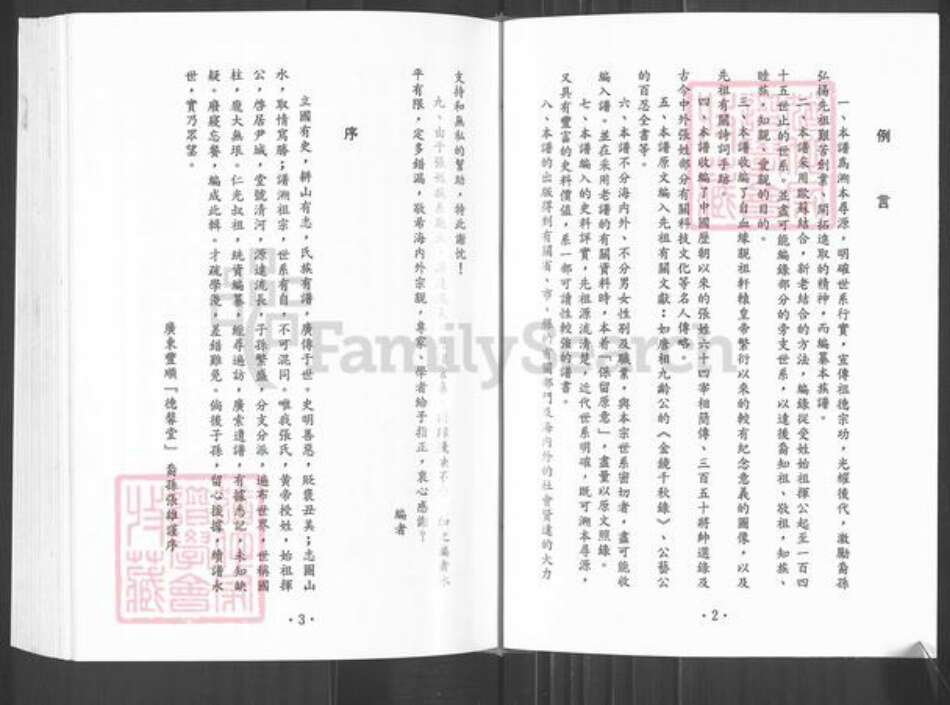 例言
一、本譜為溯本尋源，明確世系行實，宣傳祖德宗功，光耀後代，激勵裔孫
弘揚先祖艱苦創業、開拓進取的精神，而編纂本族譜。
二、本譜采用歐蘇結合，新老結合的方法，編錄從受姓始祖揮公起至一百四
十五世止的世系。並盡可能編錄部分的旁支世系，以達後裔知祖、敬祖，知族、
睦族，知親、愛親的目的。
三、本譜收編了自血緣親祖軒轅皇帝繁衍以來的較有紀念意義的圖像，以及
先祖有關詩詞手跡。
四、本譜收編了中國歷朝以來的張姓六十四宰相簡傳、三百五十將帥選錄及
古今中外張姓部分有關科技文化等名人傳略。
五、本譜原文編入先祖有關文獻：如唐相九齡公的《金鏡千秋錄》、公藝公
的百忍全書等。
六、本譜不分海內外、不分男女性別及職業，與本宗世系密切者，盡可能收
編入譜。並在采用老譜的有關資料時，本着「保留原意」，盡量以原文照錄。
七、本譜編入的史料詳實，先祖源流清楚，近代世系明確，既可溯本尋源，
又具有豐富的史料價值，系一部可讀性較強的譜書。
八、本譜的出版得到有關省、市、縣有關部門及海內外的社會賢達的大力
·2·
支持和無私的幫助，特此謝忱！
九、由于張姓
編者水
平有限，定多錯漏，敬希海內外宗親，專家、學者給予指正，衷心感能？
編者
序
立國有史，耕山有志，氏族有譜，廣傳于世。史明善惡，貶褒丑美；志圖山
水，取情寫勝；譜溯祖宗，世系有自，不可混同。唯我張氏，黃帝授姓，始祖揮
公，啓居尹城，堂號清河，源遠流長，子孫繁盛，分支分派，遍布世界，世稱國
柱，龐大無垠。仁光叔祖，統資編纂，經尋遍訪，廣索遺譜，有據悉記，未知缺
疑。廢寢忘餐，編成此輯。才疏學淺，差錯難免。倘後子孫，留心援據，續譜永
世，實乃眾望。
廣東豐順「德馨堂」裔孫張雄謹序
·3·
FamilySearch